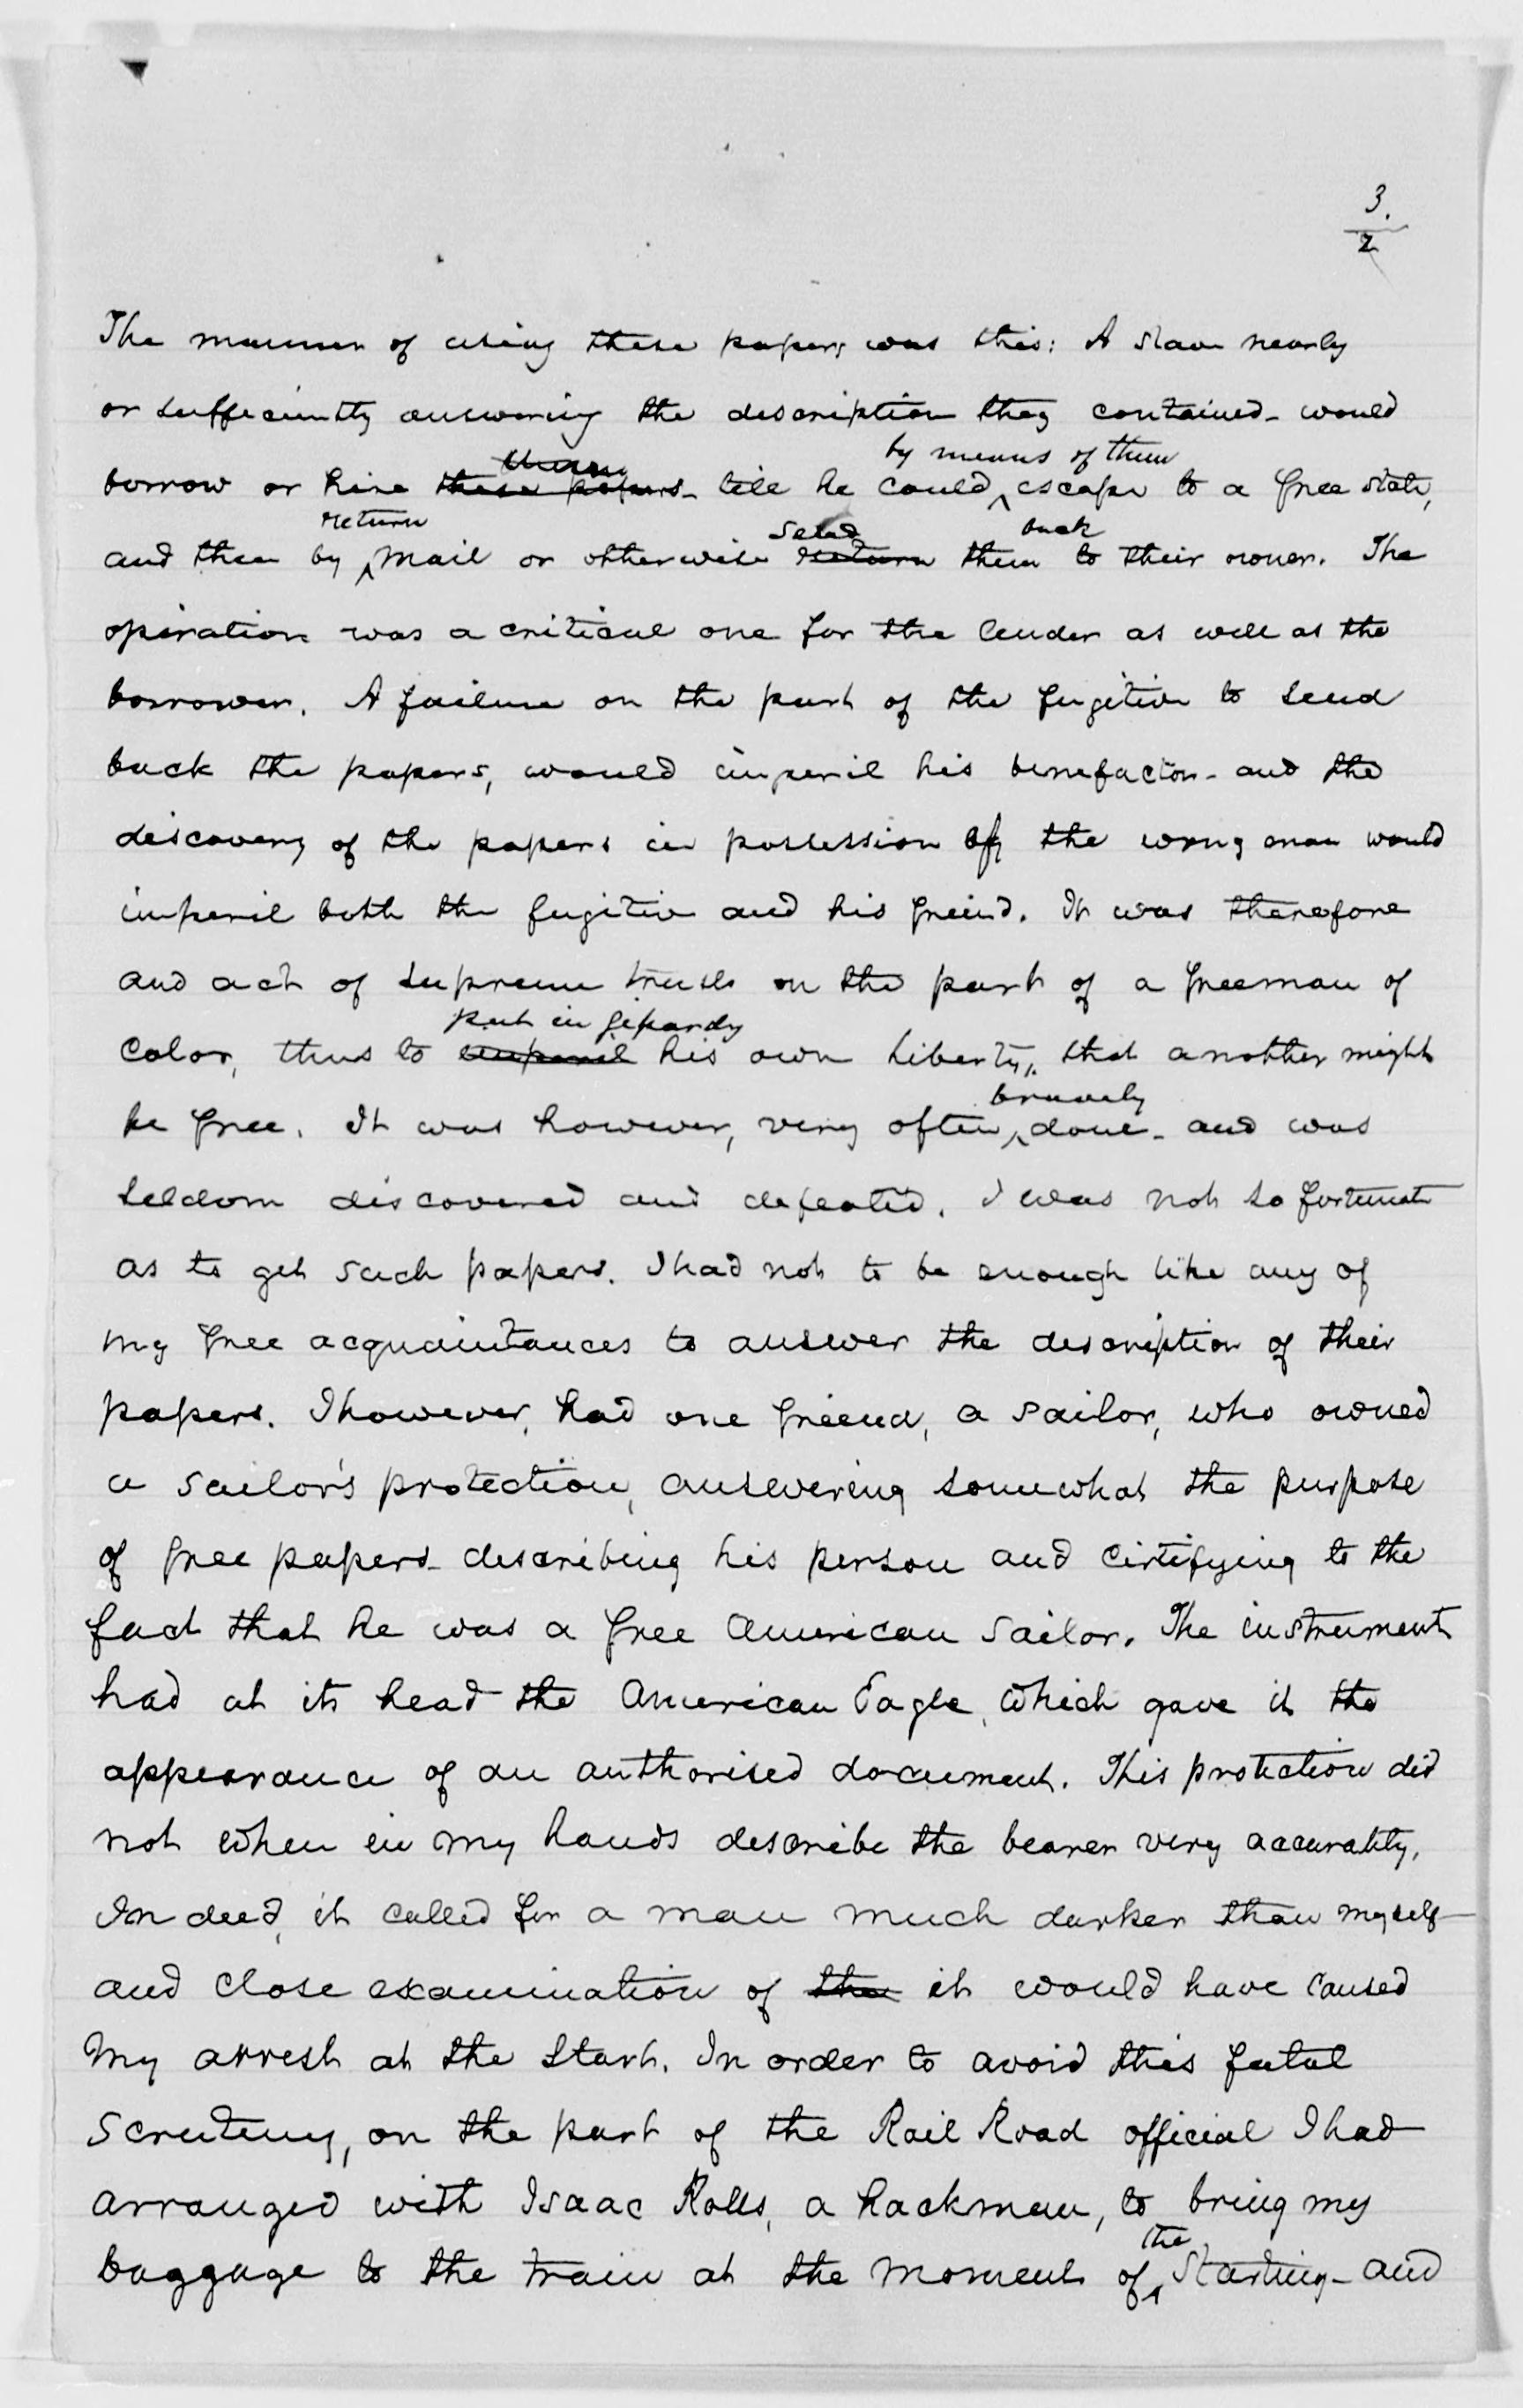 3.
2
The manner of using these papers was this: A slave nearly
or sufficiently answering the description they contained- would
them by means of them
borrow or hire these papers- till he could ^ escape to a free state,
return send back
and then by ^ mail or otherwise return them to their owner. The
opiration was a critical one for the lender as well as the
borrower. A failure on the part of the fugitive to send
back the papers, would imperil his benefactor- and the
discovery of the papers in possession of the wrong man would
imperil both the fugitive and his freind. It was therefore
and act of supreme trust on the part of a freeman of
put in jepardy
color, thus to imperil his own liberty, that another might
bravely
be free. It was however, very often ^ done- and was
seldom discovered and defeated. I was not so fortunate
as to get such papers. I had not to be enough like any of
my free acquaintances to answer the description of their
papers. I however, had one freind, a sailor, who owned
a sailor's protection, answering somewhat the purpose
of free papers- describing his person and certifying to the
fact that he was a free American sailor. The instrument
had at its head the American Eagle, which gave it the
appearance of an authorised document. This protection did
not when in my hands describe the bearer very accurately.
In deed, it called for a man much darker than myself
and close examination of the it would have caused
my arrest at the start. In order to avoid this fatal
scrutiny, on the part of the Rail Road official I had
arranged with Isaac Rolls, a hackman, to bring my
the
baggage to the train at the moment of ^ starting- and